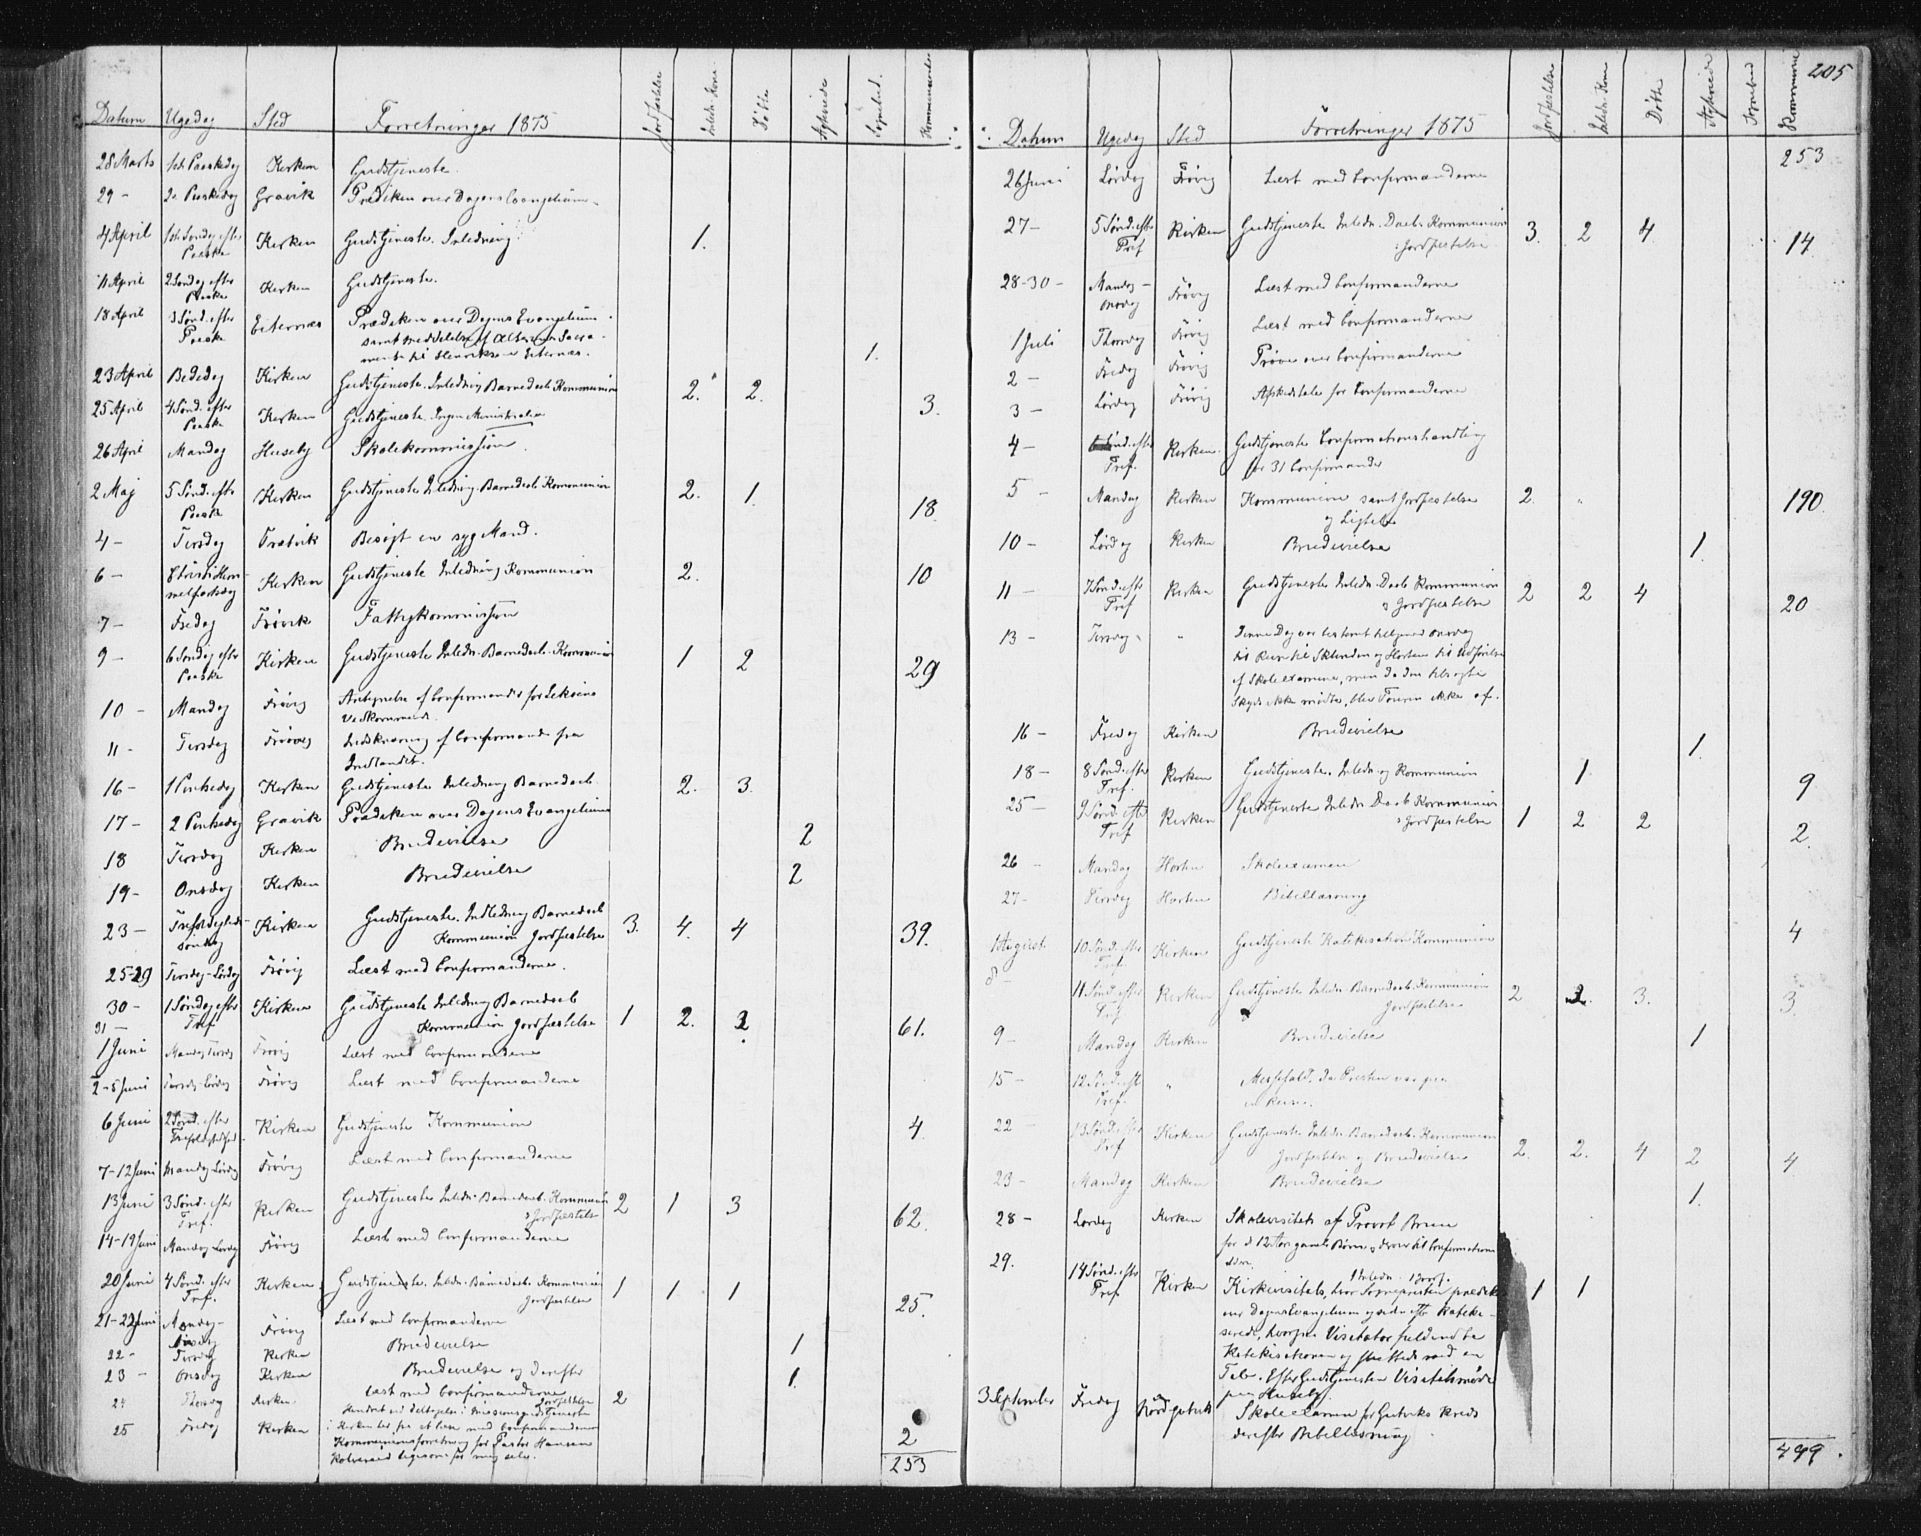 205
Datum Ugedag Sted Forretninger 1875 Jordfæstelse Døbte Kommunikanter
28 Marts 1ste Paaskedag Kirken Gudstjeneste.
29 - 2. Paaskedag Gravik Prædiken over Dagens Evangelium.
4 April 1ste Søndag efter Paaske Kirken Gudstjeneste. Inledning. 1.
11 April 2 Søndag efter Paaske Kirken Gudstjeneste.
18 April 3 Sønd. efter Paaske Eiternæs Prædiken over Dagens Evangelium
samt Meddelelse af Alterens Sacra-
mente til Henriksen Eiternæs. 1.
23 April Bededag Kirken Gudstjeneste. Inledning Barnedaab Kommunion 2. 2. 3.
25 April 4 Sønd. efter Paaske Kirken Gudstjeneste. Ingen Ministerialia
26 April Mandag Huseby Skolekommission.
2 Maj 5 Sønd. efter Paaske Kirken Gudstjeneste Inledning. Barnedaab Kommunion 2. 1. 18.
4 - Tirsdag Besøgt en syg Mand.
6 - Christi Him-
melfartsdag Kirken Gudstjeneste Inledning Kommunion 2. 10
7 - Fredag Frøvik Fattigkommission
9 - 6 Søndag efter Paaske Kirken Gudstjeneste Inledn. Barnedaab. Kommunion 1 2 29
10 - Mandag Frøvig Antegnelse af Confirmander for Leksens
Vedkommende.
11 - Tirsdag Frøvig Indskrivning af Confirmander fra
Indlandet.
16 - 1 Pintsedag Kirken Gudstjeneste Inledning Barnedaab 2. 3.
17 - 2 Pintsedag Gravik Prædiken over Dagens Evangelium
18 Tirsdag Kirken Brudevielse 2
19 - Onsdag Kirken Brudevielse 2
23 - Trefoldigheds-
søndag Kirken Gudstjeneste. Indledning Barnedaab
Kommunion Jordfæstelse 3. 4. 4 39.
25-29 Tirsdag-Lørdag Frøvig Læst med Confirmanderne.
30 - 1 Søndag efter Tref. Kirken Gudstjeneste Inledning Barnedaab
Kommunion Jordfæstelse 1 2. 61.
31 -
1 Juni Mandag Tirsdag Frøvig Læst med Confirmanderne
2-5 Juni Frøvig Læst med Confirmanderne
6 Juni 2 Sønd. efter Trefoldighed. Kirken Gudstjeneste Kommunion 4.
7-12 Juni Mandag Lørdag Frøvig Læst med Confirmanderne
13 Juni 3 Sønd. efter Tref. Kirken Gudstjeneste Inledn. Barnedaab. Kommunion
Jordfæstelse 2 1 3 62.
14-19 Juni Mandag Lørdag Frøvig Læst med Confirmanderne
20 Juni 4 Sønd. efter Tref. Kirken Gudstjeneste. Inledn. Barnedaab. Kommunion
Jordfæstelse 1 1 1 25.
21-22 Juni Mandag-
Frøvig Læst med Confirmanderne
22 - Tirsdag Kirken Brudevielse 1
23 - Onsdag Kirken Brudevielse og derefter
læst med Confirmanderne 1.
24 Thorsdag Kirken Jordfæstelse 2
25 Fredag Kirken
Kommunionsforretning for Pastor Hansen
ligesom for mig selv. 2
253
Datum Ugedag Sted Forretninger 1875 Jordfæstelse Døbte
253
26 Juni Lørdag Frøvig Læst med Confirmanderne
27 - 5 Sønd. efter Tref Kirken Gudstjeneste Inledn. Daab. Kommunion
Jordfæstelse 3. 2 4 14
28-30 - Mandag -
Frøvig Læst med Confirmanderne
1 Juli Thorsdag Frøvig Læst med Confirmanderne
2 - Fredag Frøvig Prøve over Confirmanderne
3 - Lørdag Frøvig Afskedstale for Confirmanderne
4 - 6 Sønd. efter Tref. Kirken. Gudstjeneste Confirmationshandling
for 31 Confirmander
5 - Mandag Kirken Kommunion samt Jordfæstelse
og Ligtale 2. 190.
10 - Lørdag Kirken Brudevielse 1.
11 - 7 Sønd. efter Tref Kirken Gudstjeneste Inledn. Daab Kommunion
Jordfæstelse 2 2 4 20
13 - Tirsdag - " Denne Dag var bestemt Onsdag
til Reise til Sklinden og Horten til Udførelse
af Skoleexamen, men da den tilsagte
Skyds ikke mødte, blev Touren ikke af.
16 - Fredag Kirken Brudevielse 1.
18 - 8 Sønd. efter Tref. Kirken Gudstjeneste. Inledn. og Kommunion 1 9
25 - 9 Sønd. efter Tref Kirken Gudstjeneste Inledn. Daab Kommunion
Jordfæstelse 1 2 2 2.
26 - Mandag Horten Skoleexamen
27 - Tirsdag Horten Bibellæsning
1 August 10 Sønd. efter Tref. Kirken Gudstjeneste Katekisation Kommunion 4
8 - 11 Sønd. efter Kirken Gudstjeneste Inledn. Barnedaab. Kommunion
Jordfæstelse 2 2. 3. 3.
9 - Mandag Kirken Brudevielse 1
15 - 12 Sønd. eft. Tref. " Messefald, da Præsten var paa
en Reise.
22 - 13 Sønd. efter Tref Kirken Gudstjeneste Inledn. Barnedaab. Kommunion
Jordfæstelse og Brudevielse 2. 2. 4 2 4
23 - Mandag Kirken Brudevielse 1.
28 - Lørdag Kirken Skolevisitats af Provst
for de 12 Aar gamle Børn og derover til Confirmations
alderen.
29. 14 Sønd. efter Tref. Kirken Kirkevisitats, hvor Sognepræsten prædikede
over Dagens Evangelium og siden efter kateki-
serede, hvorpaa Visitator fuldendte
Katekisationen og sluttede med en
Tale. Efter Gudstjenesten Visitatsmøde
paa Huseby. 1 1
3 September Fredag Nordgutvik Skoleexamen for Gutviks Kreds
derefter Bibellæsning
499.